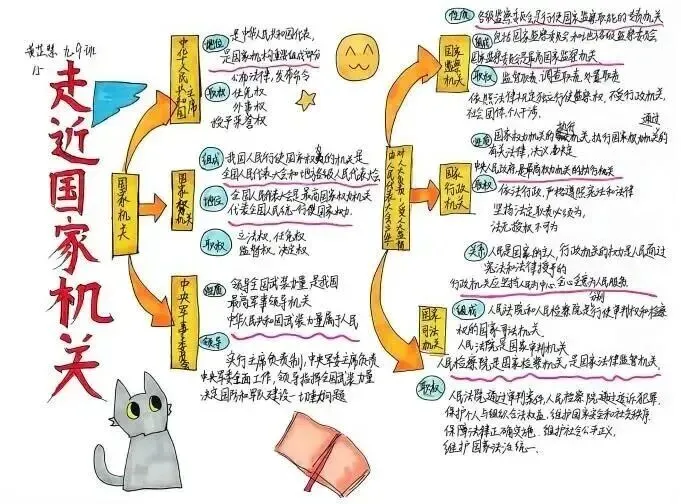 九9班
15
走近国家机关
国家机关
中华人民共和国主席
地位
是中华人民共和国代表,
是国家机构重要组成部分
职权
公布法律,发布命令
任免权
外事权
授予荣誉权
国家权力机关
组成
我国人民行使国家权力的机关是
全国人民代表大会和地方各级人民代表大会
地位
全国人民代表大会是最高国家权力机关
代表全国人民统一行使国家权力.
职权
立法权、任免权
监督权、决定权
中央军事委员会
性质
领导全国武装力量,是我国
最高军事领导机关
中华人民共和国武装力量属于人民
领导
实行主席负责制,中央军委主席负责
中央军委全面工作,领导指挥全国武装力量
决定国防和军队建设一切重大问题
由人民代表大会产生
对人大负责,受人大监督
国家监察机关
性质
各级监察委员会是行使国家监察职能的专责机关
组成
包括国家监察委员会和地方各级监察委员会
国家监察委员会是最高国家监察机关.
职权
监督职责,调查职责,处置职责
依照法律规定独立行使监察权,不受行政机关,
社会团体,个人干涉.
国家行政机关
国家权力机关的执行机关,执行国家权力机关通过的
有关法律,决议和决定
中央人民政府,是最高权力机关的执行机关
职权
依法行政,严格遵照宪法和法律
坚持法定职责必须为,
法无授权不可为
关系
人民是国家的主人,行政机关的权力是人民通过
宪法和法律授予的
行政机关应坚持以人民为中心,全心全意为人民服务.
国家司法机关
组成
人民法院和人民检察院是分别行使审判权和检察
权的国家司法机关
人民法院是国家审判机关
人民检察院是国家检察机关,是国家法律监督机关.
职权
人民法院,通过审判案件,人民检察院,通过追诉犯罪.
保护个人与组织合法权益、维护国家安全和社会秩序.
保障法律正确实施、维护社会公平正义,
维护国家法治统一.